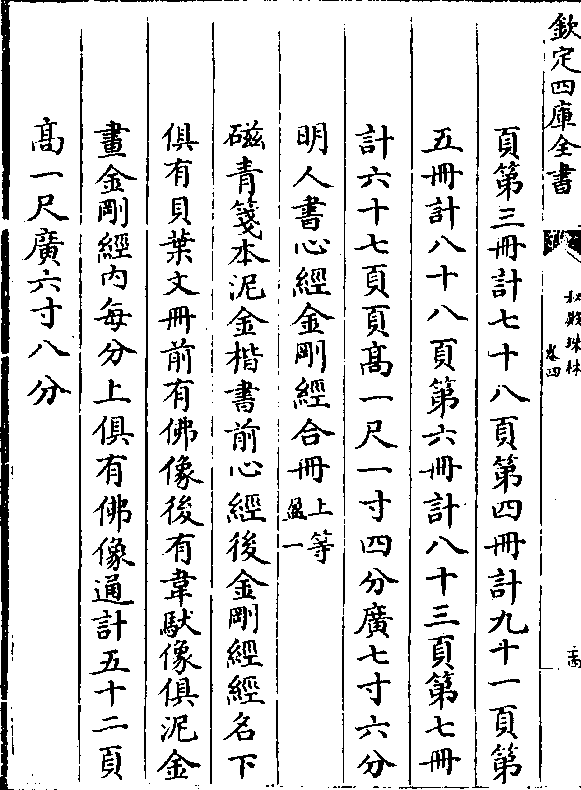 欽定四庫全書
秘殿珠林
卷四
頁第三冊計七十八頁第四冊計九十一頁第
五冊計八十八頁第六冊計八十三頁第七冊
計六十七頁頁髙一尺一寸四分廣七寸六分
明人書心經金剛經合冊上等盈一
磁青箋本泥金楷書前心經後金剛經經名下
俱有貝葉文冊前有佛像後有韋馱像俱泥金
畫金剛經内每分上俱有佛像通計五十二頁
髙一尺廣六寸八分